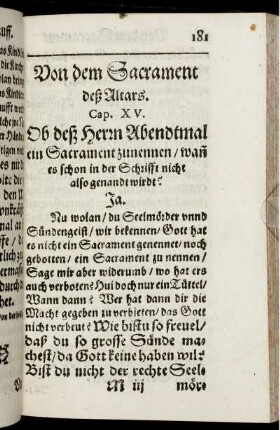 181
Von dem Sacrament
deß Altars.
Cap. XV.
Ob deß Herrn Abendtmal
ein Sacrament zunennen / wañ
es schon in der Schrifft nicht
also genandt wirdt?
Ja.
Nu wolan / du Seelmörder vnnd
Sündengeist / wir bekennen / Gott hat
es nicht ein Sacrament genennet / noch
gebotten / ein Sacrament zu nennen /
Sage mir aber widerumb / wo hat ers
auch verboten? Hui doch nur ein Tüttel /
Wann dann? Wer hat dann dir die
Macht gegeben zu verbieten / das Gott
nicht verbeut? Wie bistu so freuel /
daß du so grosse Sünde ma-
chest / da Gott keine haben wil?
Bist du nicht der rechte Seel-
M iij mör-